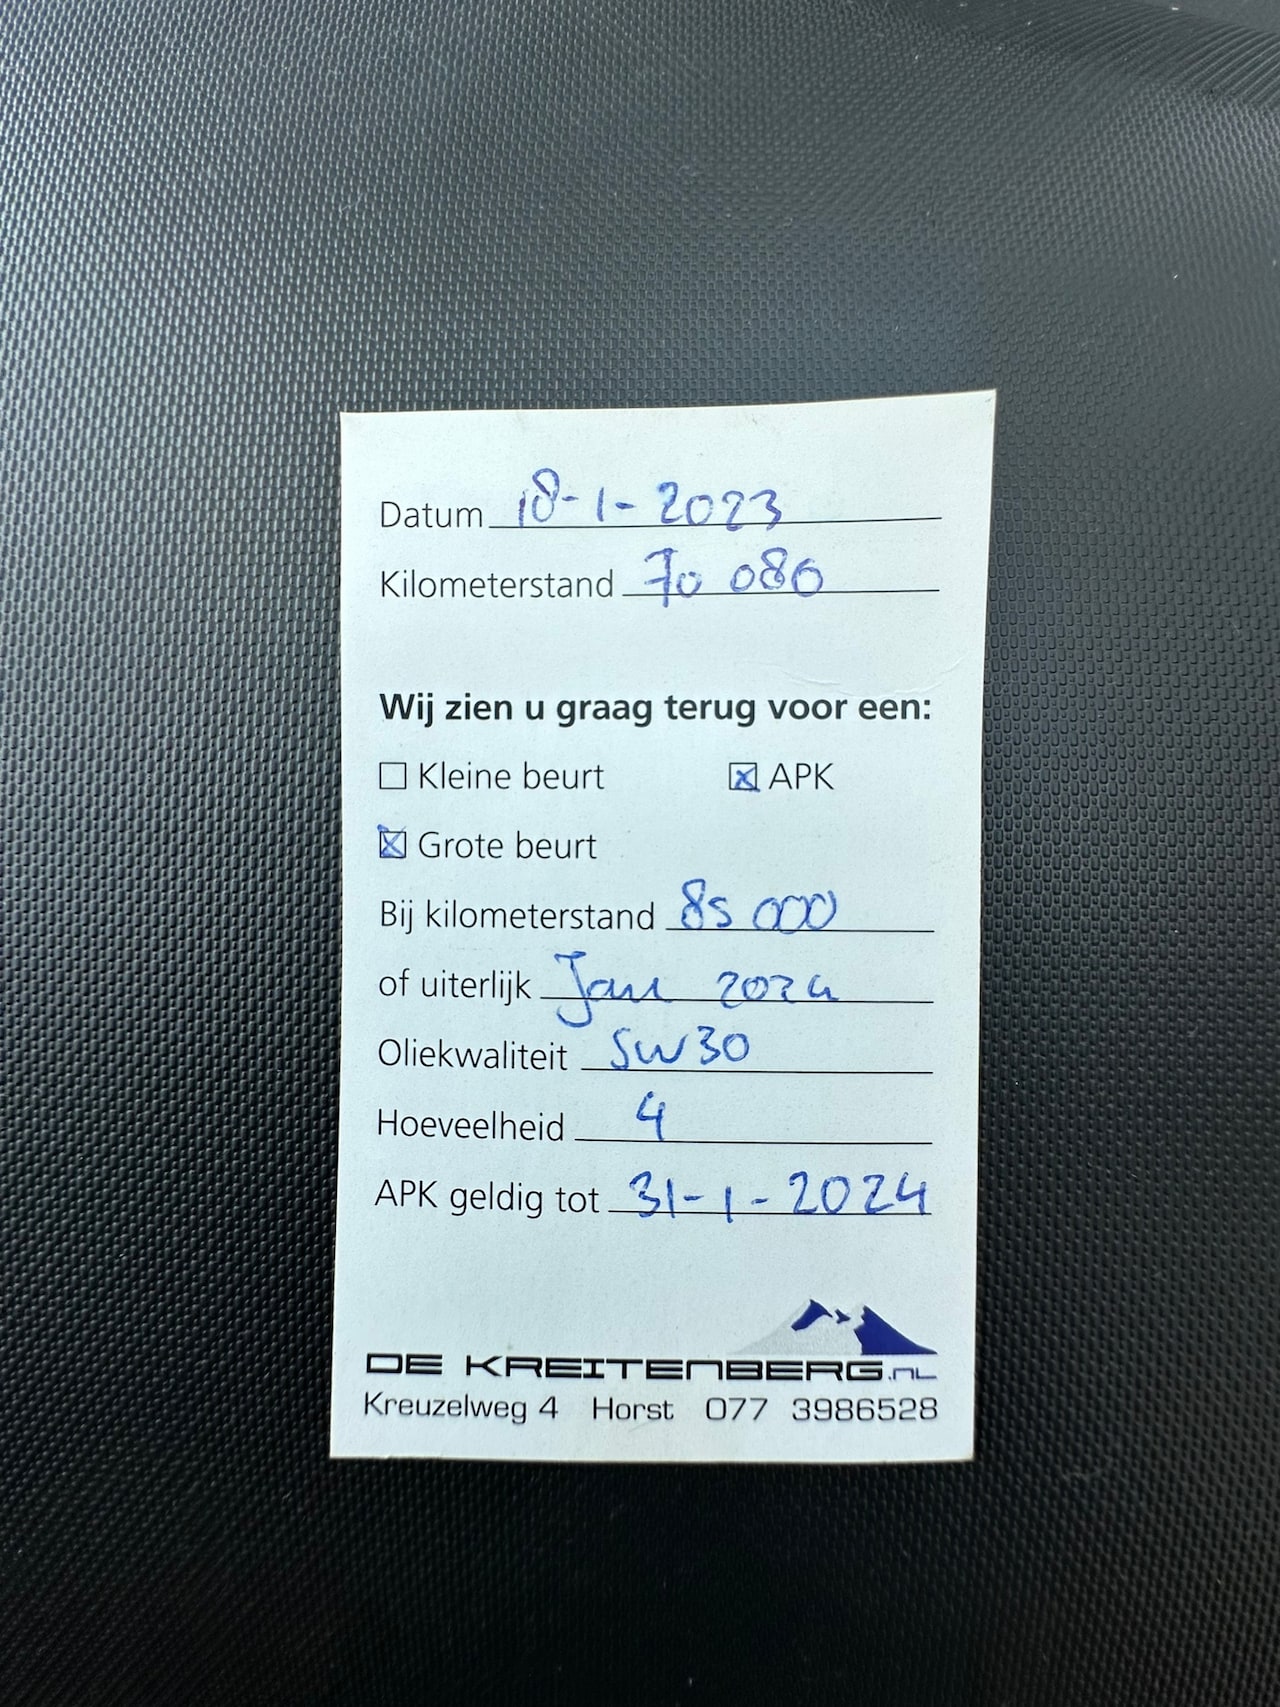 Datum 18-1-2023
Kilometerstand 70 086
Wij zien u graag terug voor een:
Kleine beurt APK
Grote beurt
Bij kilometerstand 85 000
of uiterlijk Jan 2024
Oliekwaliteit 5W30
Hoeveelheid 4
APK geldig tot 31-1-2024
DE KREITENBERG.NL
Kreuzelweg 4 Horst 077 3986528